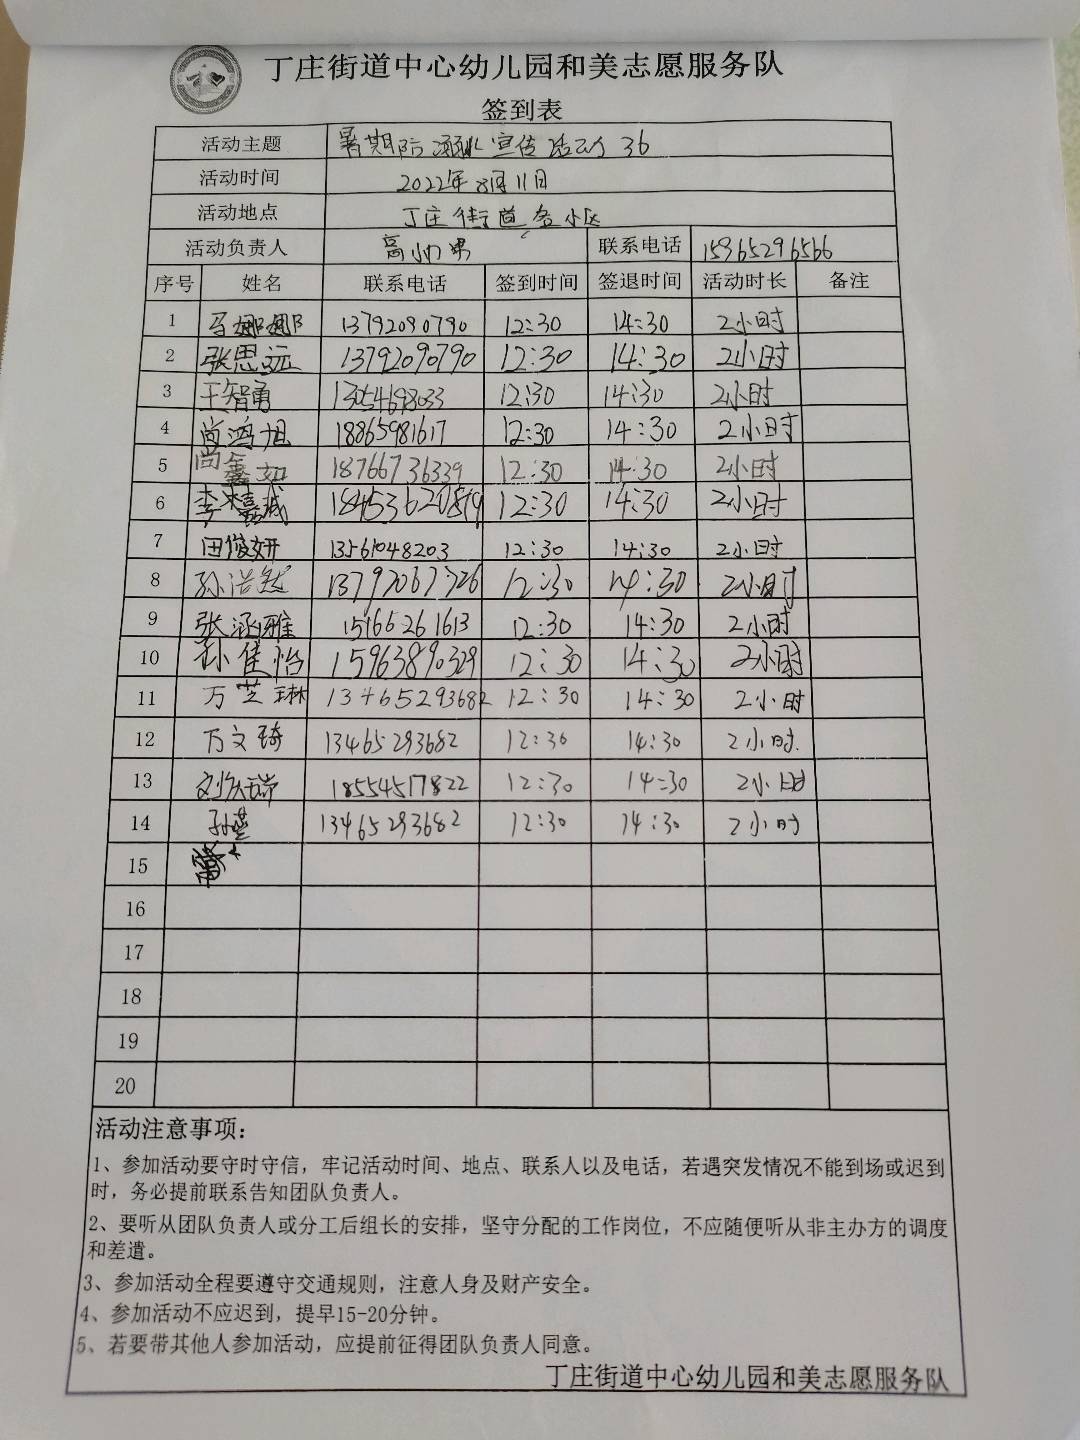 丁庄街道中心幼儿园和美志愿服务队
签到表
活动主题 暑期防溺水宣传活动 36
活动时间 2022年8月11日
活动地点 丁庄街道各小区
活动负责人 联系电话 15965296566
序号 姓名 联系电话 签到时间 签退时间 活动时长 备注
1 马娜娜 13792090790 12:30 14:30 2小时
2 张思远 13792090790 12:30 14:30 2小时
3 王智勇 13054698033 12:30 14:30 2小时
4 尚鸿旭 18865981617 12:30 14:30 2小时
5 尚鑫 18766736339 12:30 14:30 2小时
6 李嘉诚 12:30 14:30 2小时
7 田俊妍 13561048203 12:30 14:30 2小时
8 孙浩然 12:30 14:30 2小时
9 张涵雅 15166261613 12:30 14:30 2小时
10 孙佳怡 15963890329 12:30 14:30 2小时
11 万芝琳 13465293682 12:30 14:30 2小时
12 万文琦 13465293682 12:30 14:30 2小时
13 18554517822 12:30 14:30 2小时
14 13465293682 12:30 14:30 2小时
15
16
17
18
19
20
活动注意事项：
1、参加活动要守时守信，牢记活动时间、地点、联系人以及电话，若遇突发情况不能到场或迟到
时，务必提前联系告知团队负责人。
2、要听从团队负责人或分工后组长的安排，坚守分配的工作岗位，不应随便听从非主办方的调度
和差遣。
3、参加活动全程要遵守交通规则，注意人身及财产安全。
4、参加活动不应迟到，提早15-20分钟。
5、若要带其他人参加活动，应提前征得团队负责人同意。
丁庄街道中心幼儿园和美志愿服务队